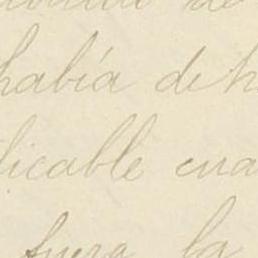 de
había de h
licable cua
fuera la